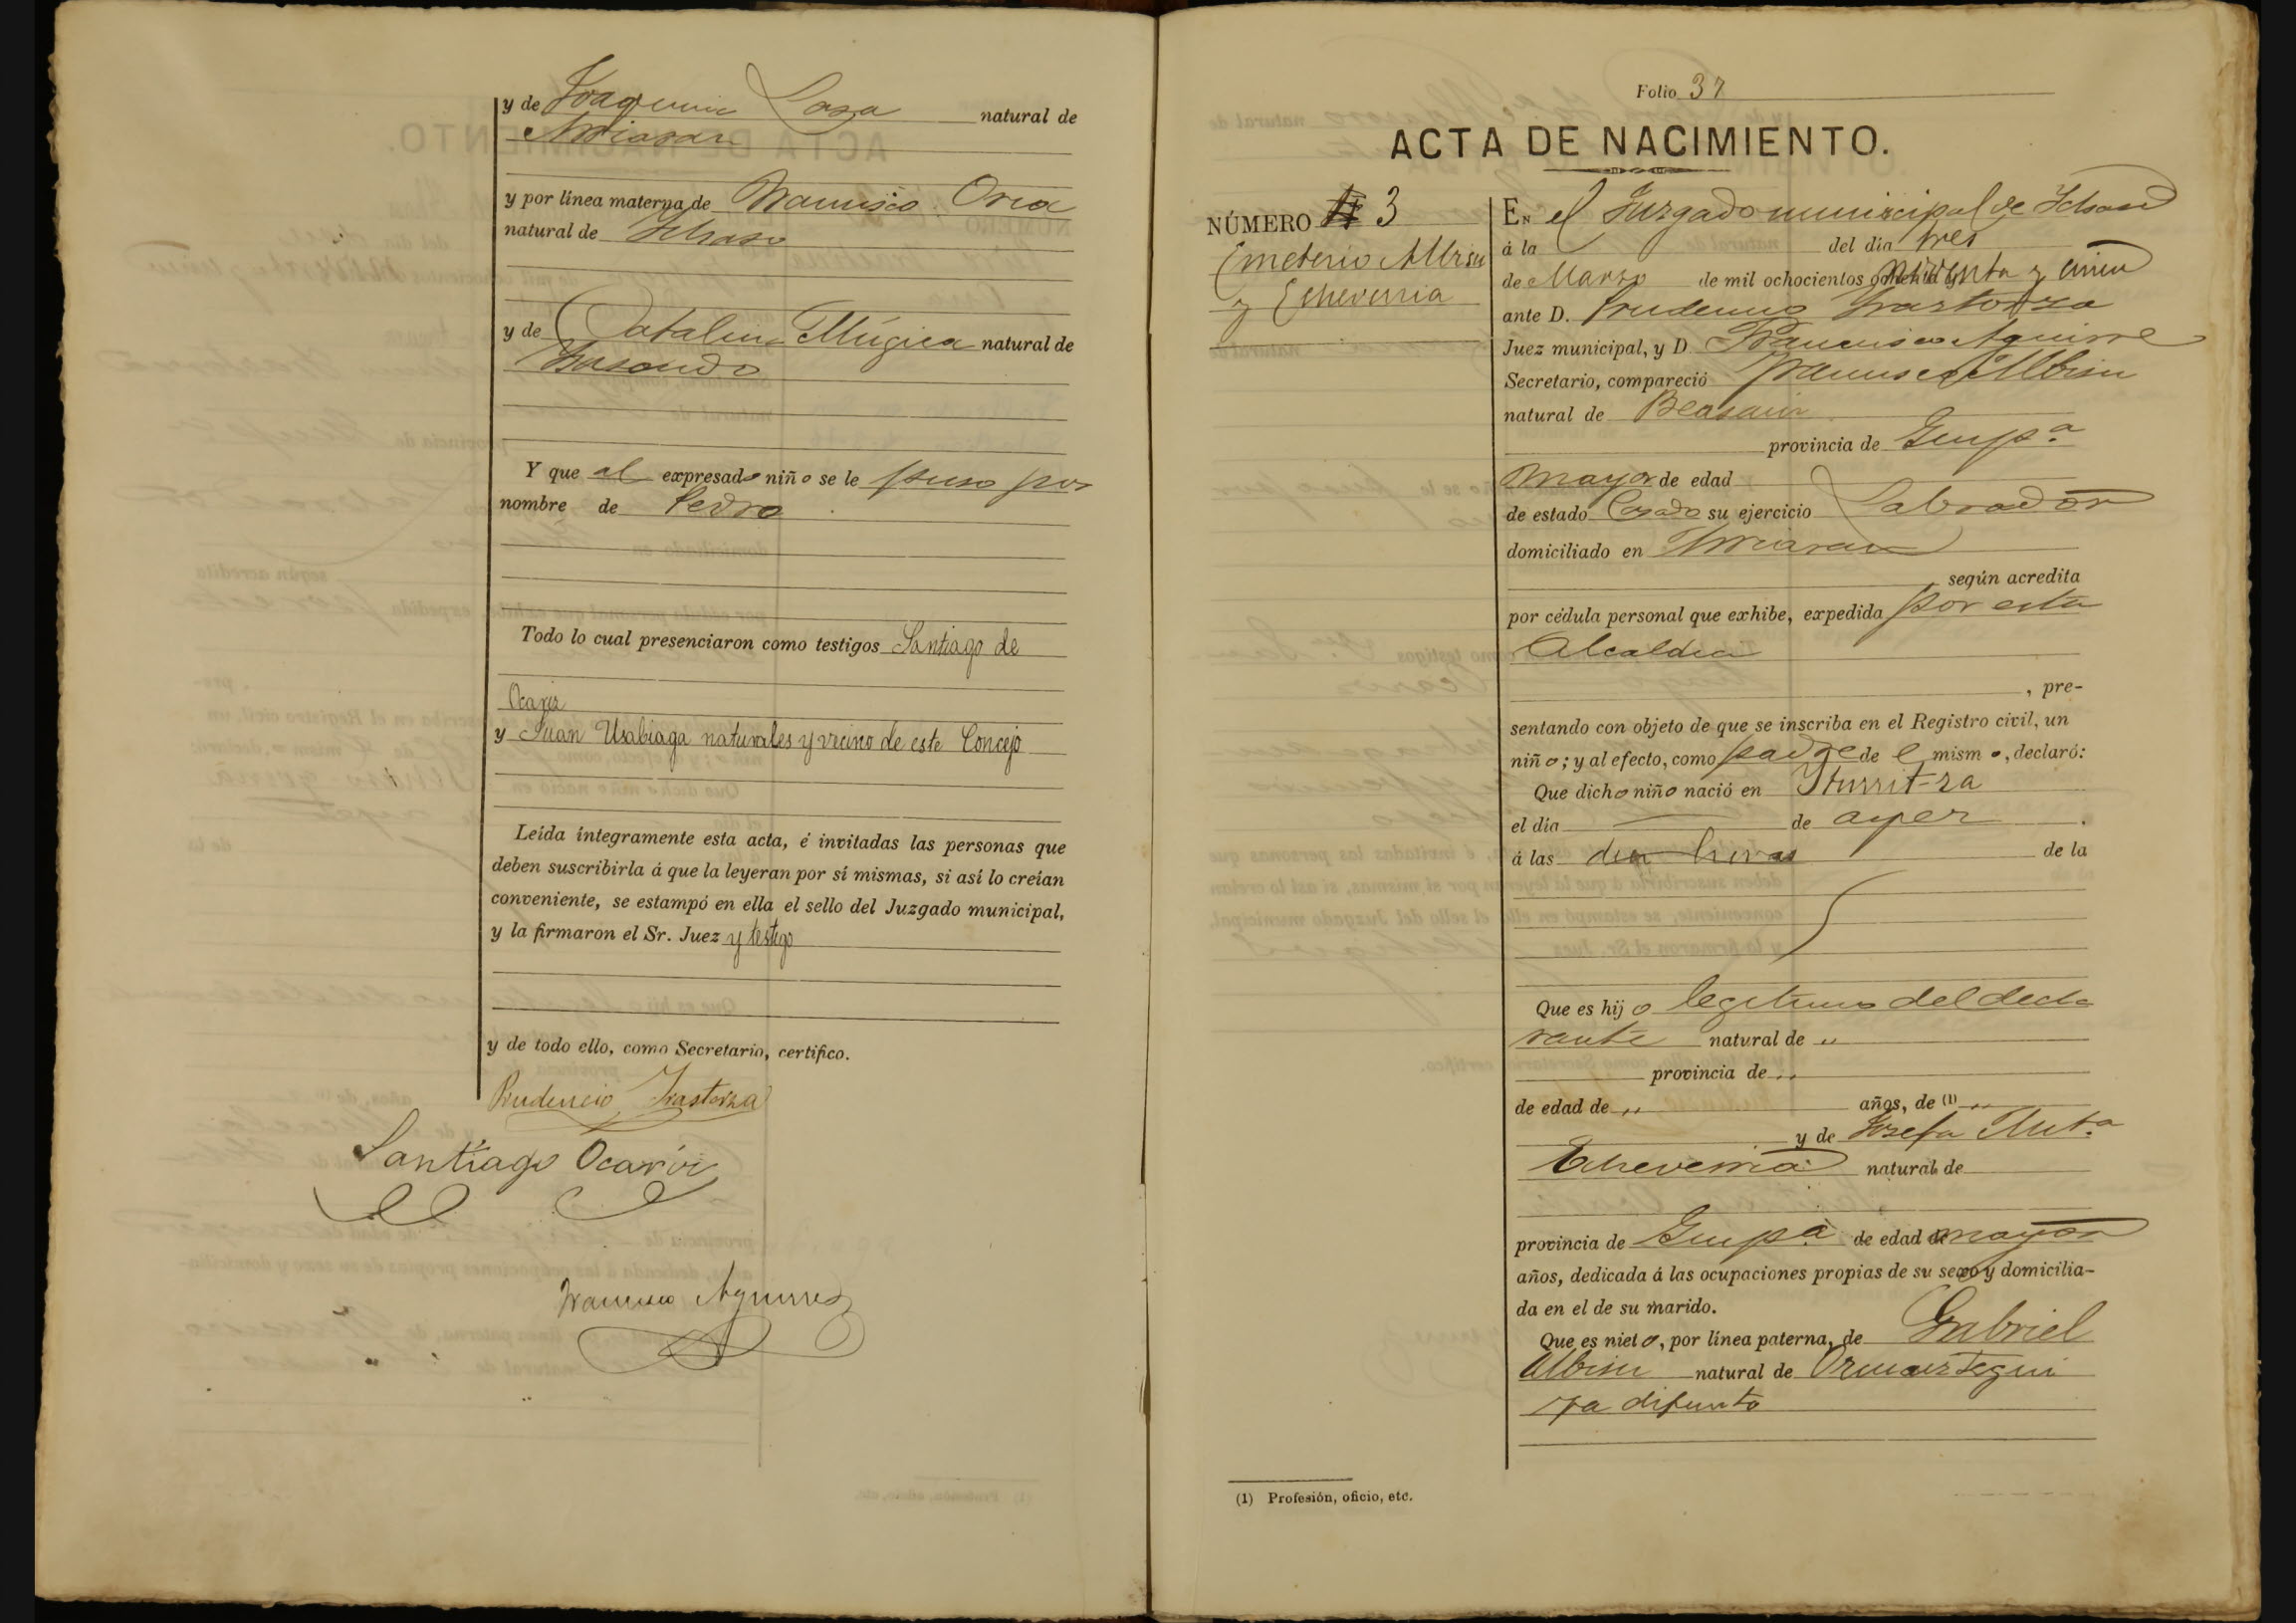 y de Joaquina Lasa natural de
Arriaran
y por línea materna de Francisco Oria
natural de Ichaso
y de Catalina Múgica natural de
Gudugarreta
Y que al expresado niño se le puso por
nombre de Pedro
Todo lo cual presenciaron como testigos Santiago de
Ocariz
y Juan Usabiaga naturales y vecino de este Concejo
Leída íntegramente esta acta, é invitadas las personas que
deben suscribirla á que la leyeran por sí mismas, si así lo creían
conveniente, se estampó en ella el sello del Juzgado municipal,
y la firmaron el Sr. Juez y testigo
y de todo ello, como Secretario, certifico.
Prudencio Irastorza
Santiago Ocariz
Francisco Aguirre
Folio 37
ACTA DE NACIMIENTO.
NÚMERO 3
Emeterio Albisu
y Echeverria
EN el Juzgado municipal de Ichaso
á la del día tres
de Marzo de mil ochocientos noventa y cinco
ante D. Prudencio Irastorza
Juez municipal, y D. Francisco Aguirre
Secretario, compareció Francisco Albisu
natural de Beasain
provincia de Guipª
mayor de edad
de estado Casado su ejercicio Labrador
domiciliado en Arriaran
según acredita
por cédula personal que exhibe, expedida por esta
Alcaldia
, pre-
sentando con objeto de que se inscriba en el Registro civil, un
niño; y al efecto, como padre de l mismo, declaró:
Que dicho niño nació en Iturritza
el día de ayer
á las diez horas de la
Que es hijo legitimo del decla
rante natural de "
provincia de "
de edad de " años, de (1) "
y de Josefa Antª
Echeverria natural de
provincia de Guipª de edad de mayor
años, dedicada á las ocupaciones propias de su sexo y domicilia-
da en el de su marido.
Que es nieto, por línea paterna, de Gabriel
Albisu natural de Ormaiztegui
ya difunto
(1) Profesión, oficio, etc.